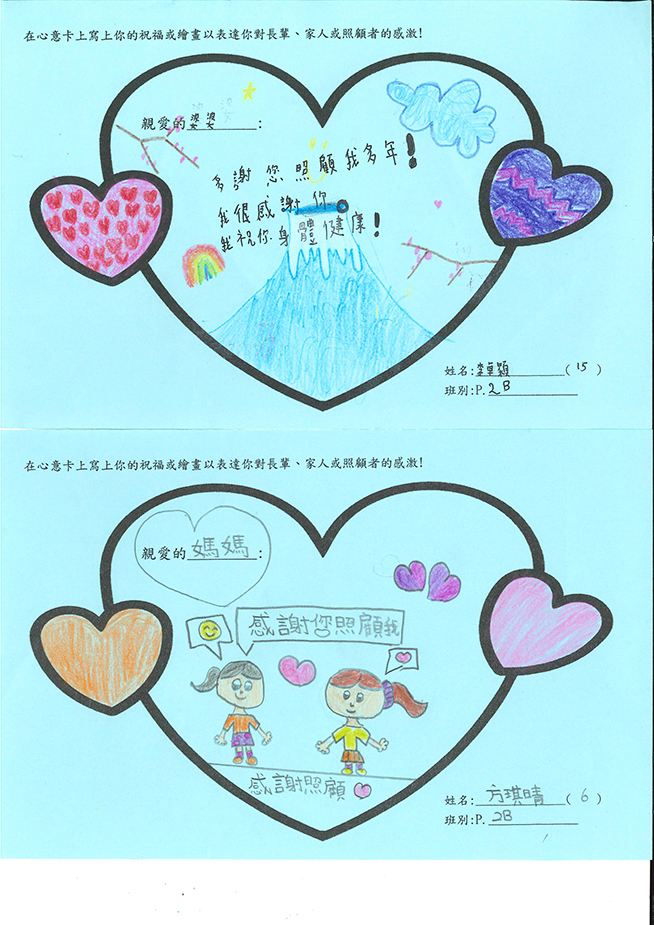 在心意卡上寫上你的祝福或繪畫以表達你對長輩、家人或照顧者的感激!
親愛的婆婆:
多謝您照顧我多年!
我很感謝你。
我祝你身體健康!
姓名:李卓穎(15)
班別:P.2B
在心意卡上寫上你的祝福或繪畫以表達你對長輩、家人或照顧者的感激!
親愛的媽媽:
感謝您照顧我
感謝照顧
姓名:方琪晴(6)
班別:P.2B